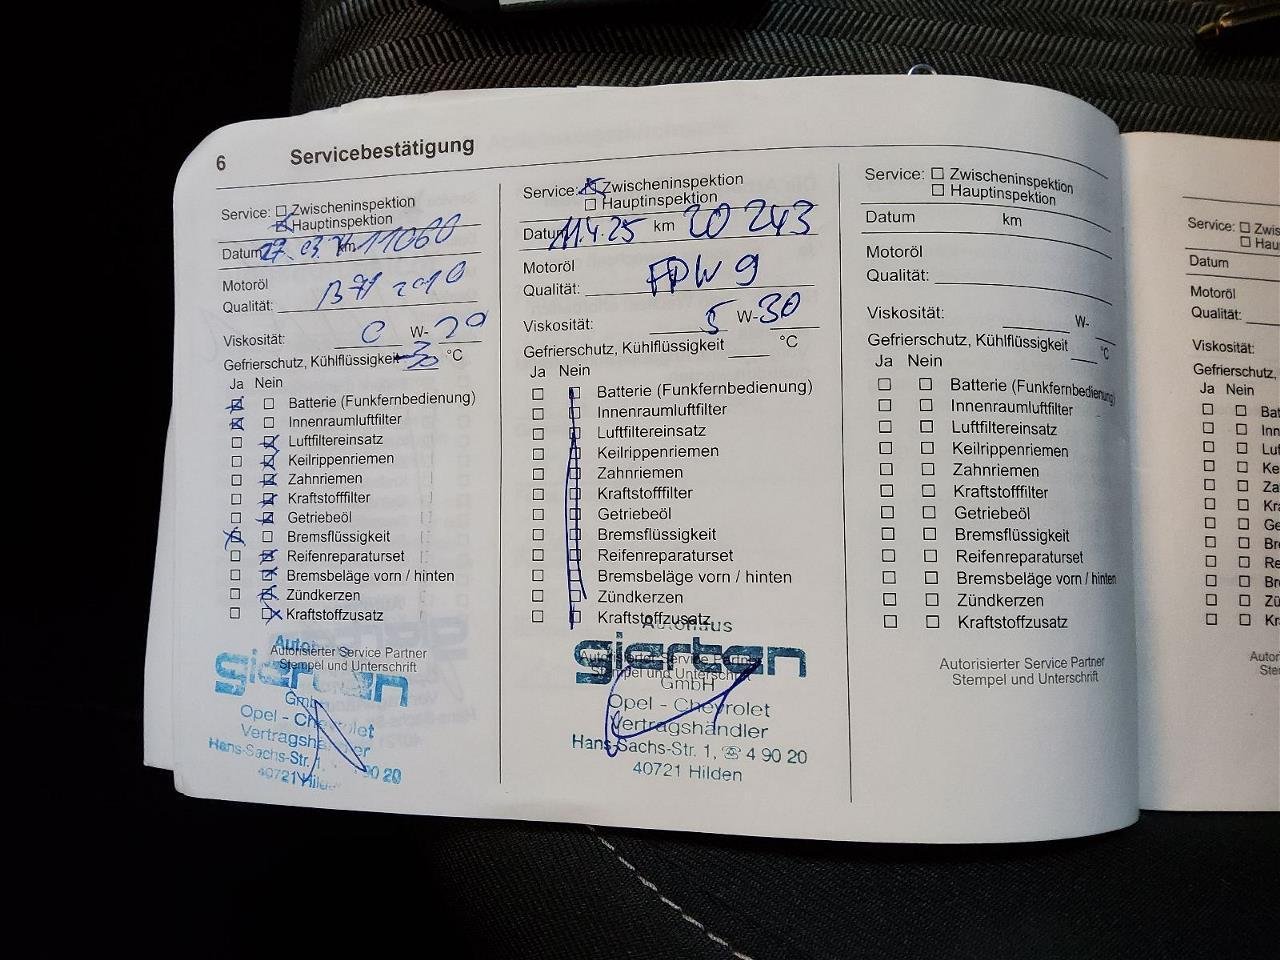 6 Servicebestätigung
Service: Zwischeninspektion
Hauptinspektion
Datum 27.03. km 11060
Motoröl
Qualität: B71 2010
Viskosität: C W-20
Gefrierschutz, Kühlflüssigkeit -30 °C
Ja Nein
Batterie (Funkfernbedienung)
Innenraumluftfilter
Luftfiltereinsatz
Keilrippenriemen
Zahnriemen
Kraftstofffilter
Getriebeöl
Bremsflüssigkeit
Reifenreparaturset
Bremsbeläge vorn / hinten
Zündkerzen
Kraftstoffzusatz
Autorisierter Service Partner
Stempel und Unterschrift
gierten
GmbH
Opel - Chevrolet
Vertragshändler
Hans-Sachs-Str. 1, 90 20
40721 Hilden
Service: Zwischeninspektion
Hauptinspektion
Datum 11.4.25 km 20 243
Motoröl
Qualität: FPW 9
Viskosität: 5 W-30
Gefrierschutz, Kühlflüssigkeit °C
Ja Nein
Batterie (Funkfernbedienung)
Innenraumluftfilter
Luftfiltereinsatz
Keilrippenriemen
Zahnriemen
Kraftstofffilter
Getriebeöl
Bremsflüssigkeit
Reifenreparaturset
Bremsbeläge vorn / hinten
Zündkerzen
Kraftstoffzusatz
Autohaus
Autorisierter Service Partner
gierten
Stempel und Unterschrift
GmbH
Opel - Chevrolet
Vertragshändler
Hans-Sachs-Str. 1, ☏ 4 90 20
40721 Hilden
Service: Zwischeninspektion
Hauptinspektion
Datum km
Motoröl
Qualität:
Viskosität: W-
Gefrierschutz, Kühlflüssigkeit °C
Ja Nein
Batterie (Funkfernbedienung)
Innenraumluftfilter
Luftfiltereinsatz
Keilrippenriemen
Zahnriemen
Kraftstofffilter
Getriebeöl
Bremsflüssigkeit
Reifenreparaturset
Bremsbeläge vorn / hinten
Zündkerzen
Kraftstoffzusatz
Autorisierter Service Partner
Stempel und Unterschrift
Service: Zwis
Hau
Datum
Motoröl
Qualität:
Viskosität:
Gefrierschutz,
Ja Nein
Bat
Inn
Luf
Kei
Za
Kra
Ge
Br
Re
Br
Zü
Kr
Autor
Ste